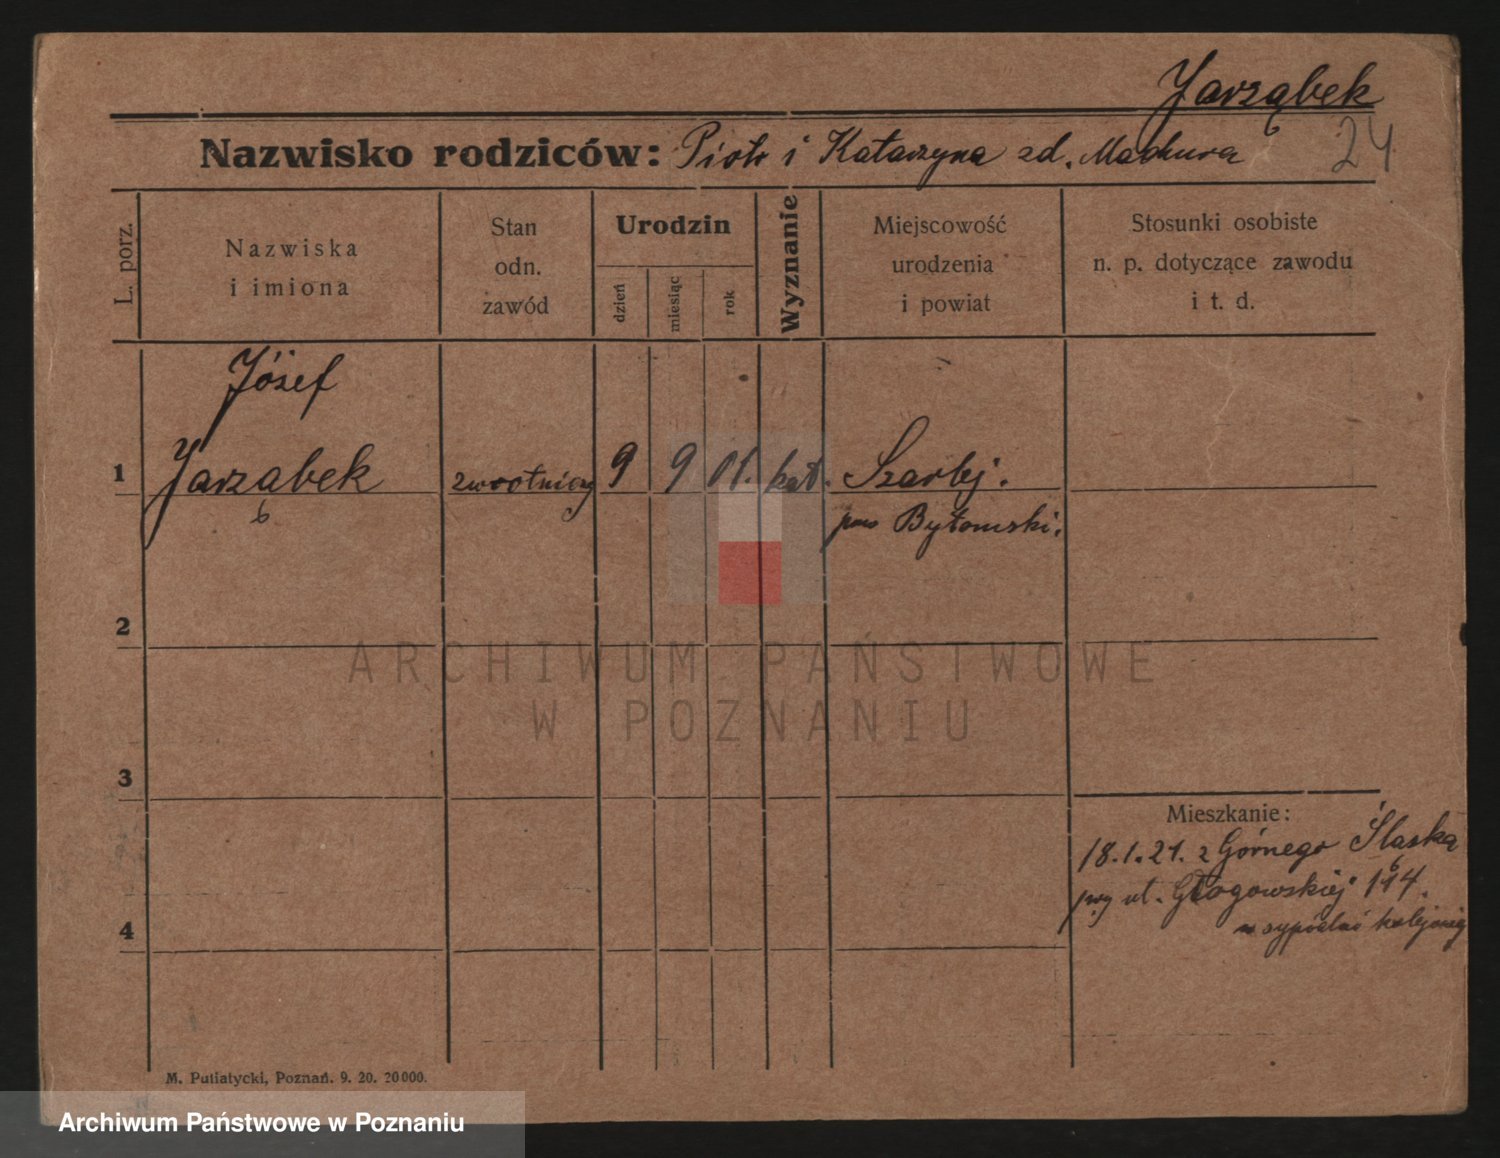 Jarząbek
24
Nazwisko rodziców: Piotr i Katarzyna zd. Machura
L. porz.
Nazwiska
i imiona
Stan
odn.
zawód
Urodzin
dzień
miesiąc
rok
Wyznanie
Miejscowość
urodzenia
i powiat
Stosunki osobiste
n. p. dotyczące zawodu
i t. d.
Józef
1 Jarząbek zwrotniczy 9 9 01. kat. Szarlej.
pow Bytomski.
2
ARCHIWUM PAŃSTWOWE
W POZNANIU
3
Mieszkanie:
18.1.21. z Górnego Śląska
przy ul. Głogowskiej
4
w sypialni kolejowej
M. Putiatycki, Poznań. 9. 20. 20000.
Archiwum Państwowe w Poznaniu